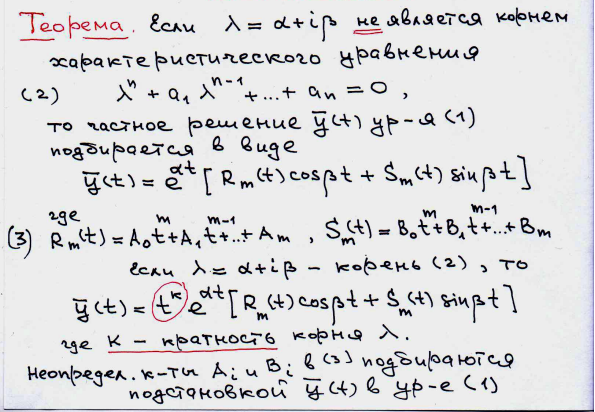 Теорема. Если λ = α+iβ не является корнем
характеристического уравнения
(2) λⁿ + a₁ λⁿ⁻¹ + ... + aₙ = 0 ,
то частное решение ȳ(t) ур-я (1)
подбирается в виде
ȳ(t) = e^{αt} [ Rₘ(t) cosβt + Sₘ(t) sinβt ]
где
(3) Rₘ(t) = A₀tᵐ + A₁tᵐ⁻¹ + ... + Aₘ , Sₘ(t) = B₀tᵐ + B₁tᵐ⁻¹ + ... + Bₘ
если λ = α+iβ – корень (2) , то
ȳ(t) = tᵏ e^{αt} [ Rₘ(t) cosβt + Sₘ(t) sinβt ]
где к – кратность корня λ.
Неопредел. к-ты Aᵢ и Bᵢ в (3) подбираются
подстановкой ȳ(t) в ур-е (1)